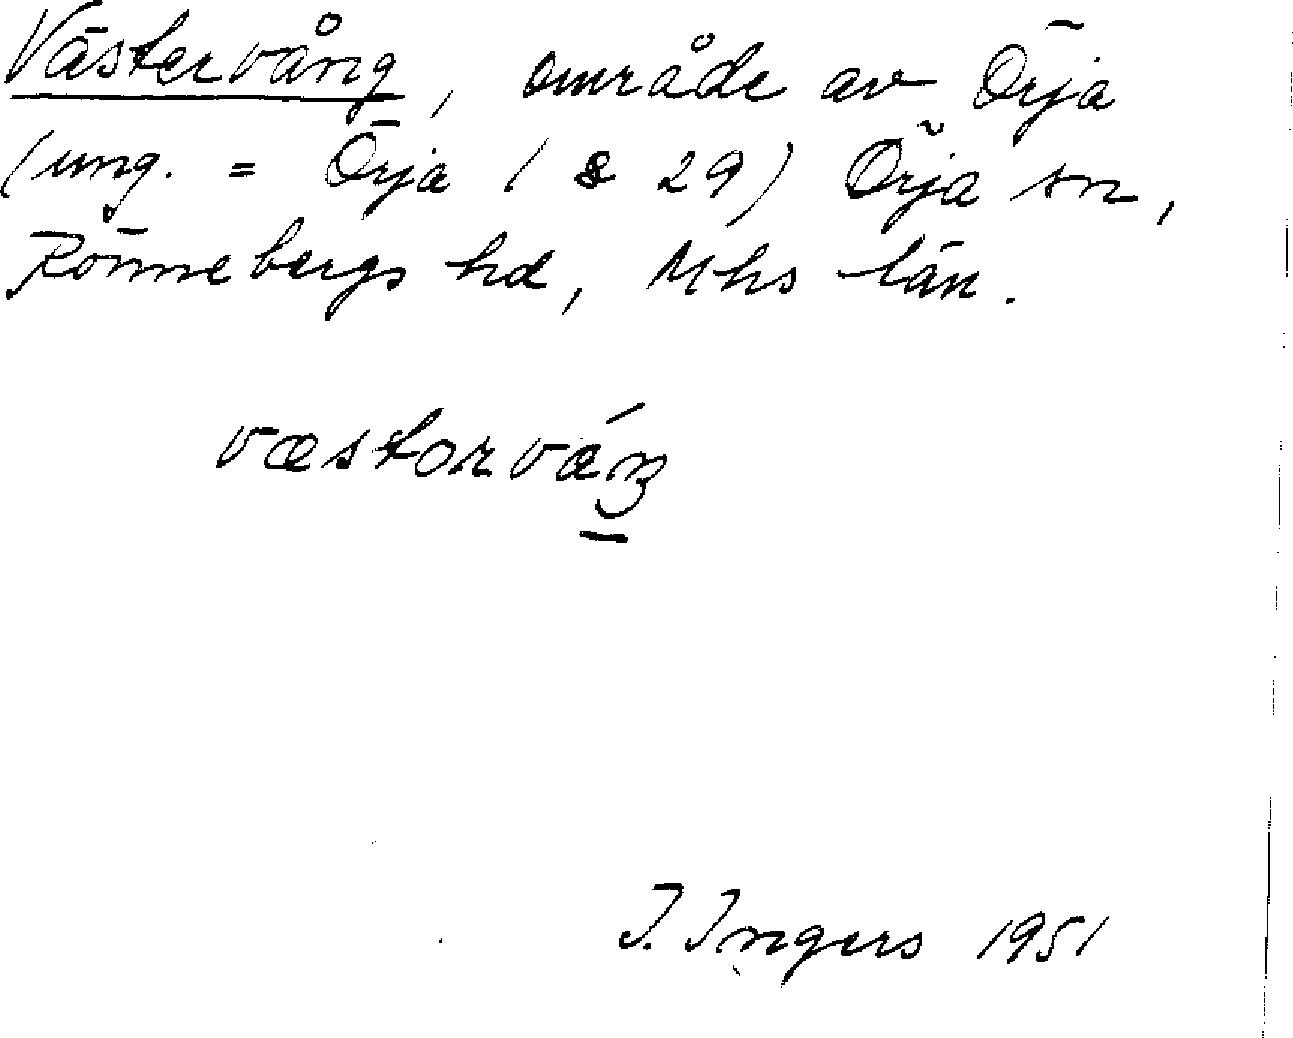 Västervång, område av Örja
(ung. = Örja 1 & 29) Örja sn,
Rönnebergs hd, Mhs län.
I. Ingers 1951